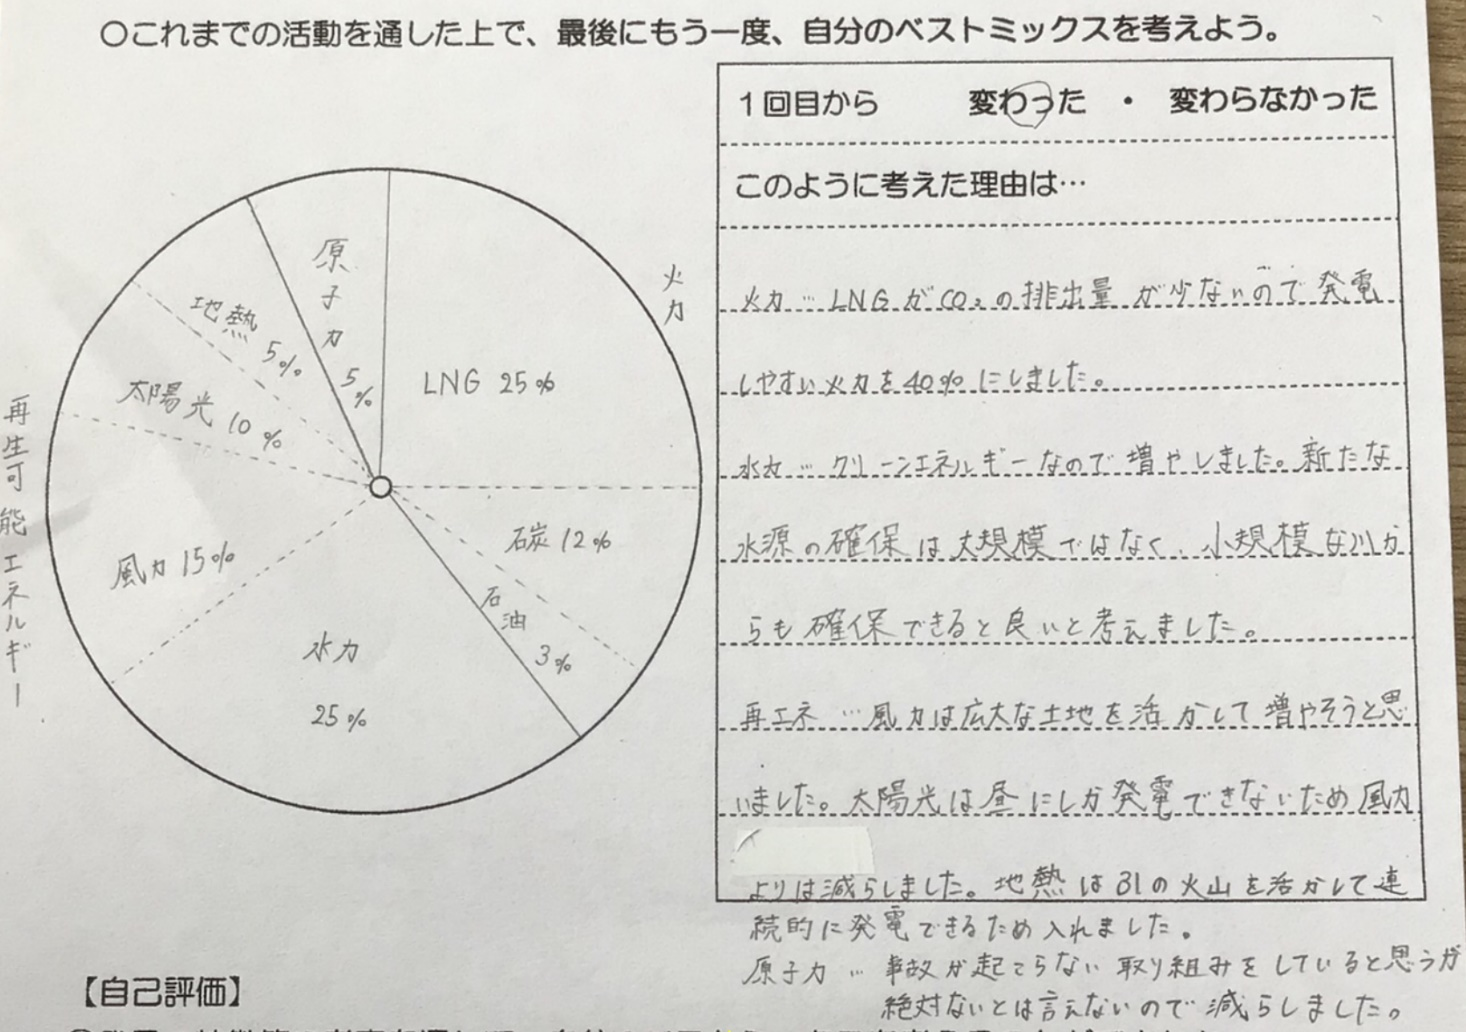 〇これまでの活動を通した上で、最後にもう一度、自分のベストミックスを考えよう。
火力
LNG 25%
石炭 12%
石油 3%
水力
25%
風力 15%
太陽光 10%
地熱 5%
原子力 5%
再生可能エネルギー
1回目から 変わった ・ 変わらなかった
このように考えた理由は…
火力 … LNGがCO₂の排出量が少ないので発電
しやすい火力を40%にしました。
水力 … クリーンエネルギーなので増やしました。新たな
水源の確保は大規模ではなく、小規模な川か
らも確保できると良いと考えました。
再エネ … 風力は広大な土地を活かして増やそうと思
いました。太陽光は昼にしか発電できないため風力
よりは減らしました。地熱は31の火山を活かして連
続的に発電できるため入れました。
原子力 … 事故が起こらない取り組みをしていると思うが
絶対ないとは言えないので減らしました。
【自己評価】